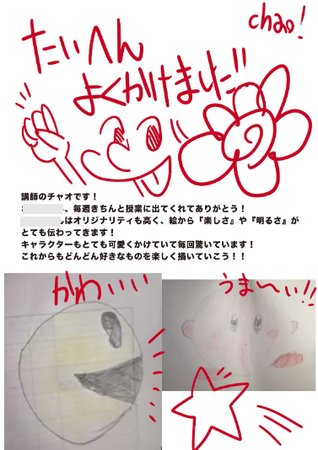 chao!
たいへん
よくかけました!!
講師のチャオです！
、毎週きちんと授業に出てくれてありがとう！
はオリジナリティも高く、絵から『楽しさ』や『明るさ』が
とても伝わってきます！
キャラクターもとても可愛くかけていて毎回驚いています！
これからもどんどん好きなものを楽しく描いていこう！！
かわいい
うま〜い!!